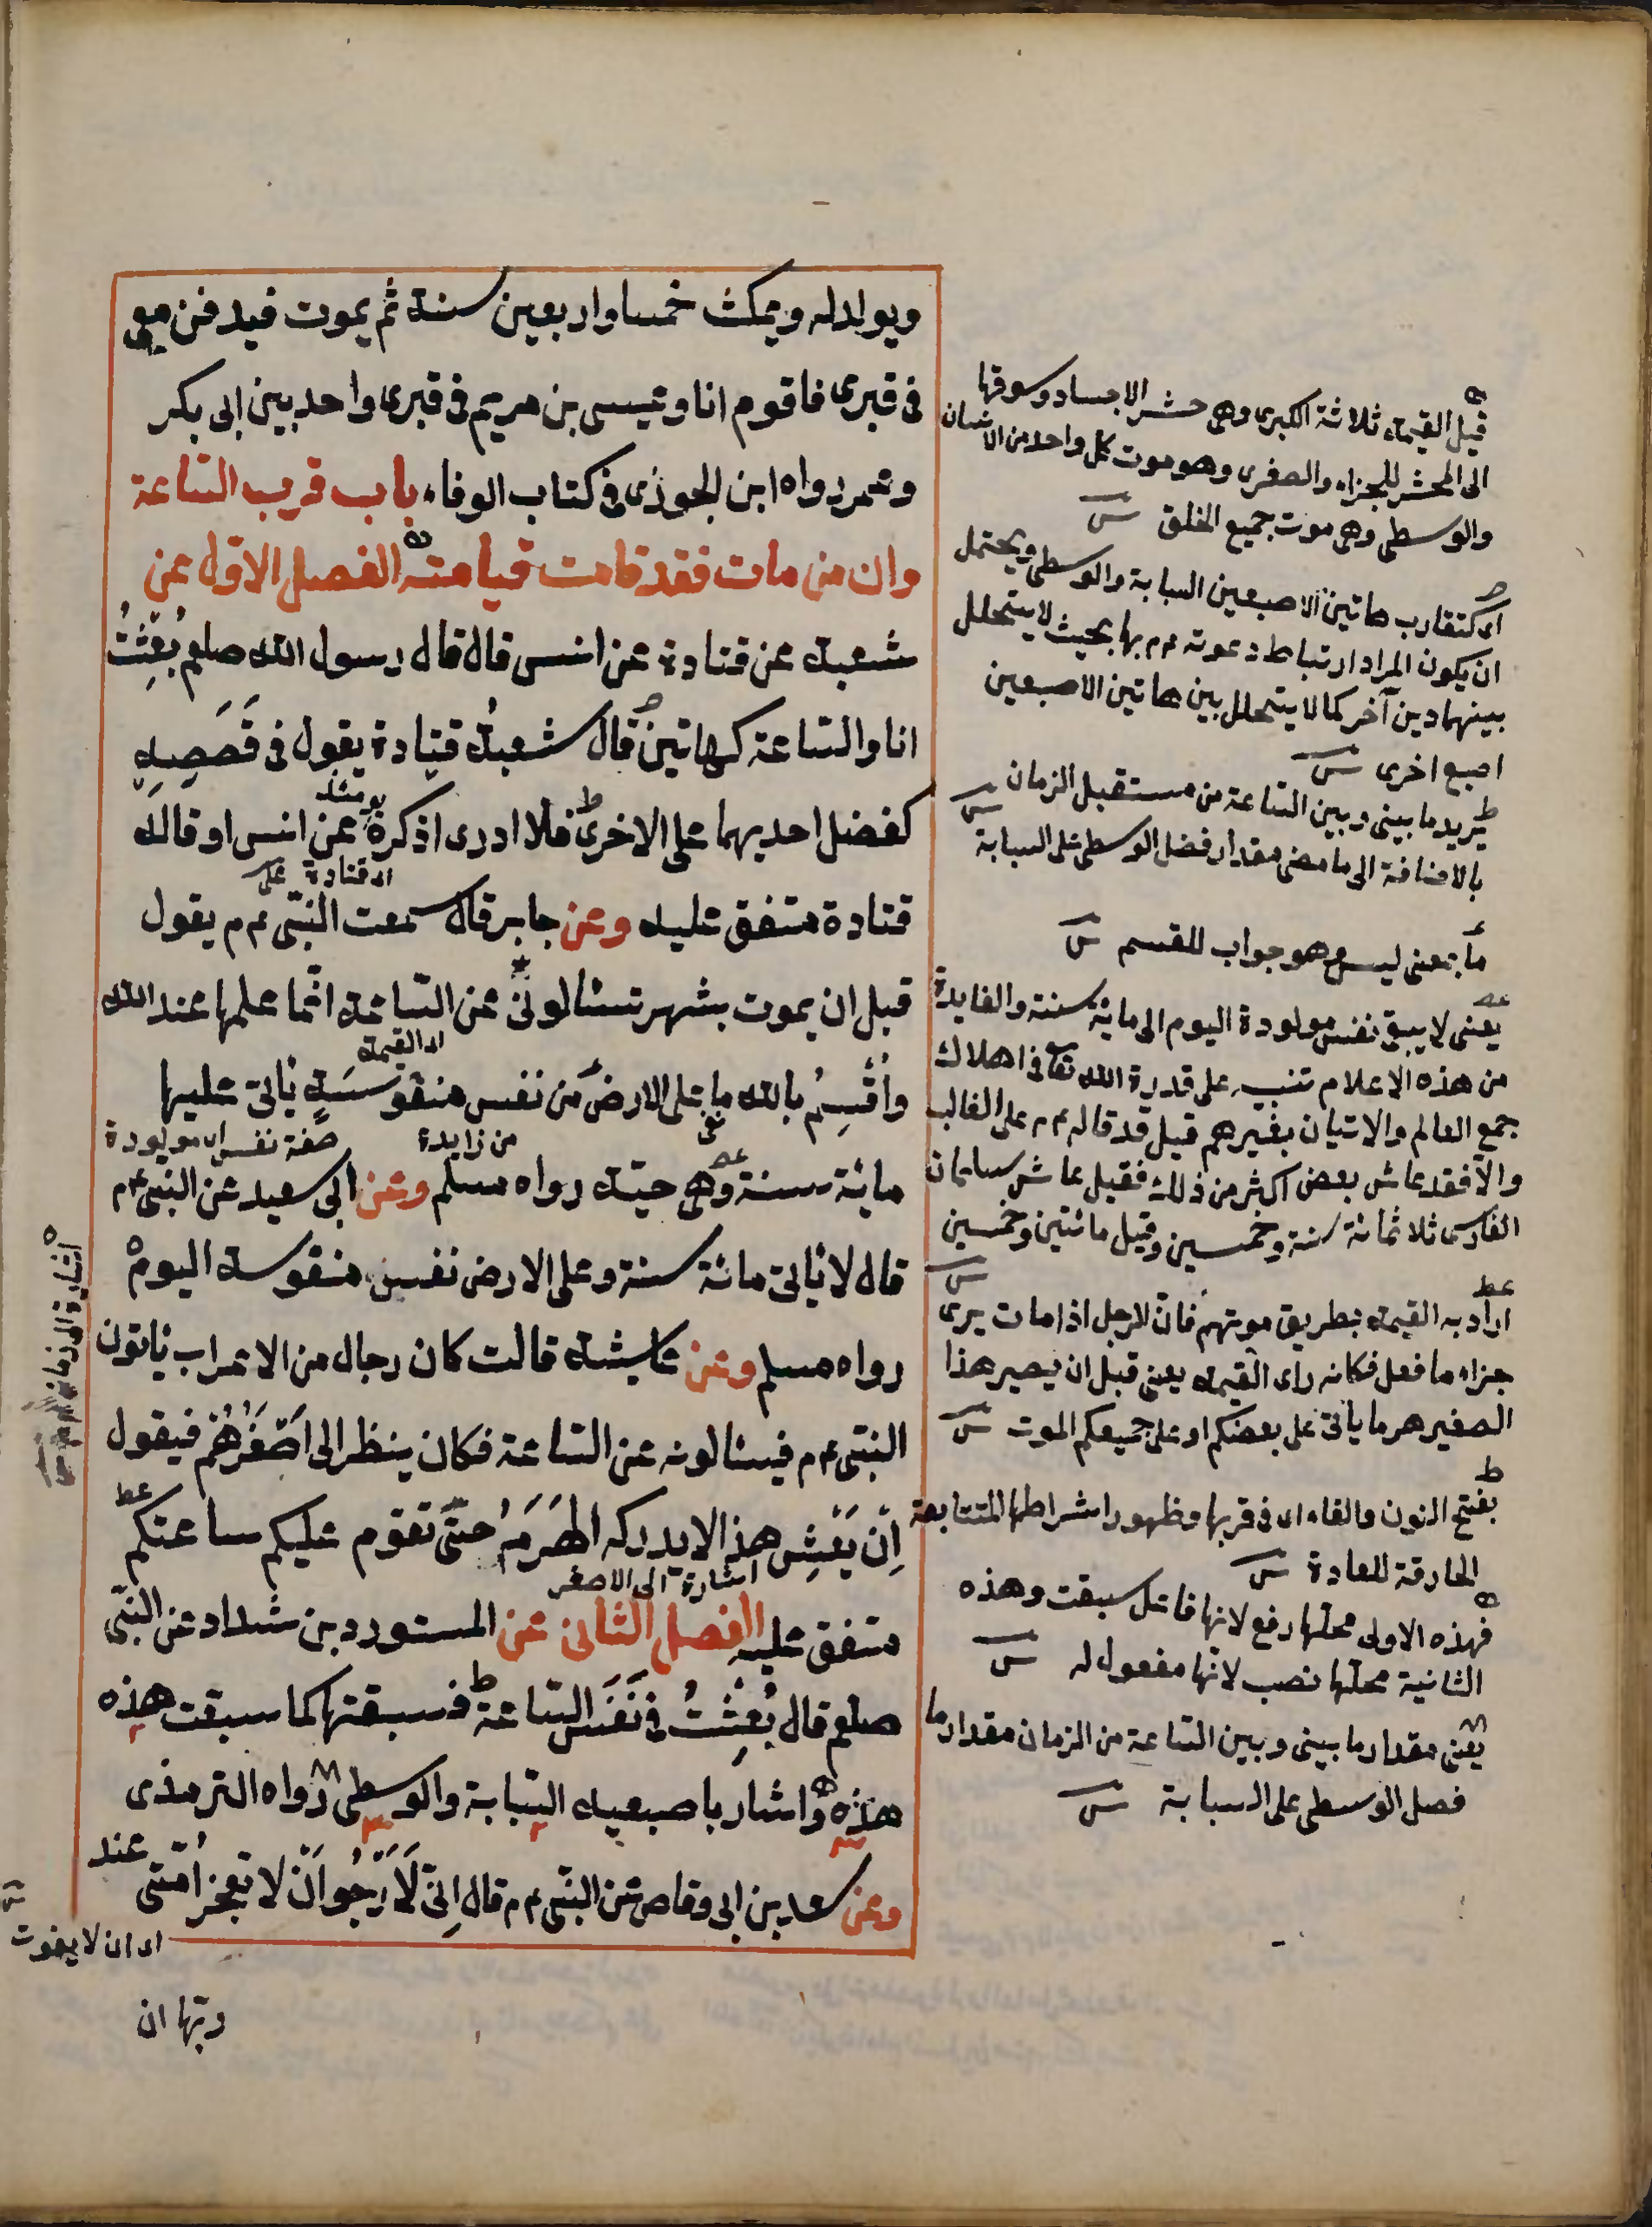 ويولد له ويمكث خمسا واربعين سنة ثم يموت فيدفن معى
فى قبرى فاقوم انا وعيسى بن مريم فى قبرى واحد بين ابى بكر
وعمر رواه ابن الجوذى فى كتاب الوفاء باب قرب الساعة
وان من مات فقد قامت قيامته الفصل الاول عن
شعبة عن قتادة عن انس قال قال رسول الله صلعم بُعِثْتُ
انا والساعة كهاتين قال شعبة قتادة يقول فى قَصَصِهِ
كفضل احديهما على الاخرى فلا ادرى اذكرة عن انس او قاله
قتادة متفق عليه وعن جابر قال سمعت النبى ءم يقول
اى قتادة على
قبل ان يموت بشهر تسئالونى عن الساعة انما علمها عند الله
اى القيمة
واُقْسِمُ بالله ما على الارض من نفس منفوسَةٍ ياتى عليها
من زايدة
صفة نفس اى مولودة
مائة سنة وهى حية رواه مسلم وعن ابى سعيد عن النبى ءم
قال لا ياتى مائة سنة وعلى الارض نفس منفوسة اليوم
رواه مسلم وعن عايشة قالت كان رجال من الاعراب ياتون
النبى ءم فيسئالونه عن الساعة فكان ينظر الى اَصْغَرِهُم فيقول
اِن يَعِشِ هذا لا يدركه الهَرَمُ حتى تقوم عليكم ساعتكم
اشارة الى الاصغر
متفق عليه الفصل الثانى عن المستورد بن شداد عن النبى
صلعم قال بُعِثْتُ فى نَفَسِ الساعة فسبقتها كما سبقت هذه
هذه واشار باصبعيه السبابة والوسطى رواه الترمذى
وعن سعد بن ابى وقاص عن النبى ءم قال اِنى لَاَرْجُو اَن لا تعجز اُمتى عند
اى ان لا يفوت
ربها ان
قيل القيمة ثلاثة الكبرى وهى حشر الاجساد وسوقها
الى المحشر للجزاء والصغرى وهو موت كل واحد من الانسان
والوسطى وهى موت جميع الخلق
اى كتقارب هاتين الاصبعين السبابة والوسطى ويحتمل
ان يكون المراد ارتباط دعوته ءم بها بحيث لا يتخلل
بينهما دين آخر كما لا يتخلل بين هاتين الاصبعين
اصبع اخرى
يريد ما بينى وبين الساعة من مستقبل الزمان
بالاضافة الى ما مضى مقدار فضل الوسطى على السبابة
ما بمعنى ليس وهو جواب للقسم
يعنى لا يبقى نفس مولودة اليوم الى مائة سنة والفايدة
من هذه الاعلام تنبيه على قدرة الله تعا فى اهلاك
جمع العالم والاتيان بغيرهم قيل قد قاله ءم على الغالب
والا فقد عاش بعض اكثر من ذلك فقيل عاش سلمان
الفارسى ثلاثمائة سنة وخمسين وقيل مائتين وخمسين
اراد به القيمة بطريق موتهم فان الرجل اذا مات يرى
جزاء ما فعل فكانه راى القيمة يعنى قبل ان يصير هذا
الصغير هرما ياتى على بعضكم او على جميعكم الموت
بفتح النون والفاء اى فى قربها وظهور اشراطها المتتابعة
الخارقة للعادة
فهذه الاولى محلها رفع لانها فاعل سبقت وهذه
الثانية محلها نصب لانها مفعول له
يعنى مقدار ما بينى وبين الساعة من الزمان مقدار ما
فصل الوسطى على السبابة